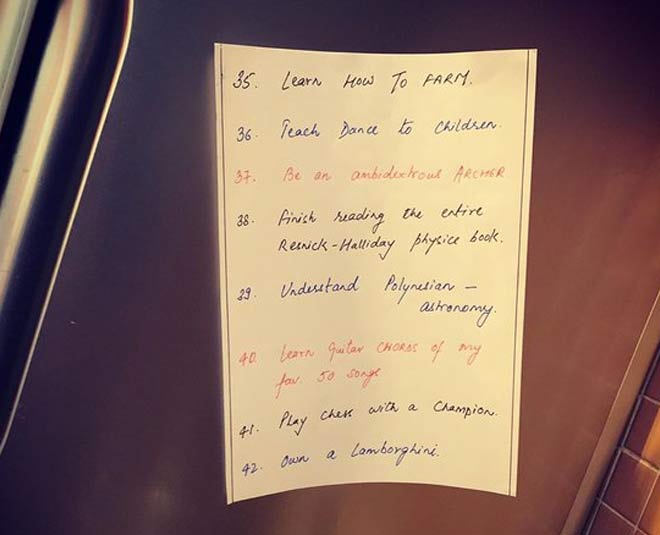 35. Learn HOW TO FARM.
36. Teach Dance to Children.
37. Be an ambidextrous ARCHER
38. Finish reading the entire
Resnick-Halliday physics book.
39. Understand Polynesian -
astronomy.
40. Learn Guitar CHORDS of my
fav. 50 songs
41. Play chess with a Champion.
42. Own a Lamborghini.